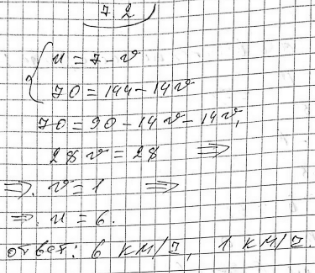 7.2
u = 7 - v
70 = 144 - 14v
70 = 90 - 14v - 14v,
28v = 28 ⇒
⇒. v = 1 ⇒
⇒. u = 6.
ответ: 6 км/ч, 1 км/ч.